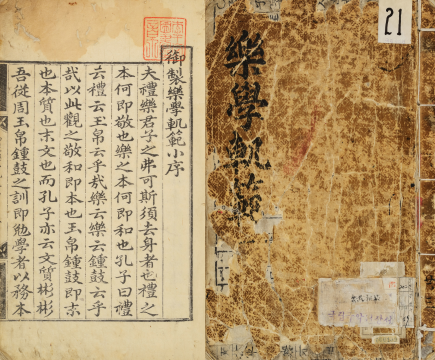 21
樂學軌範
御製樂學軌範小序
夫禮樂君子之弗可斯須去身者也禮之
本何即敬也樂之本何即和也孔子曰禮
云禮云玉帛云乎哉樂云樂云鍾鼓云乎
哉以此觀之敬和即本也玉帛鍾鼓即末
也本質也末文也而孔子亦云文質彬彬
吾從周玉帛鍾鼓之訓即勉學者以務本